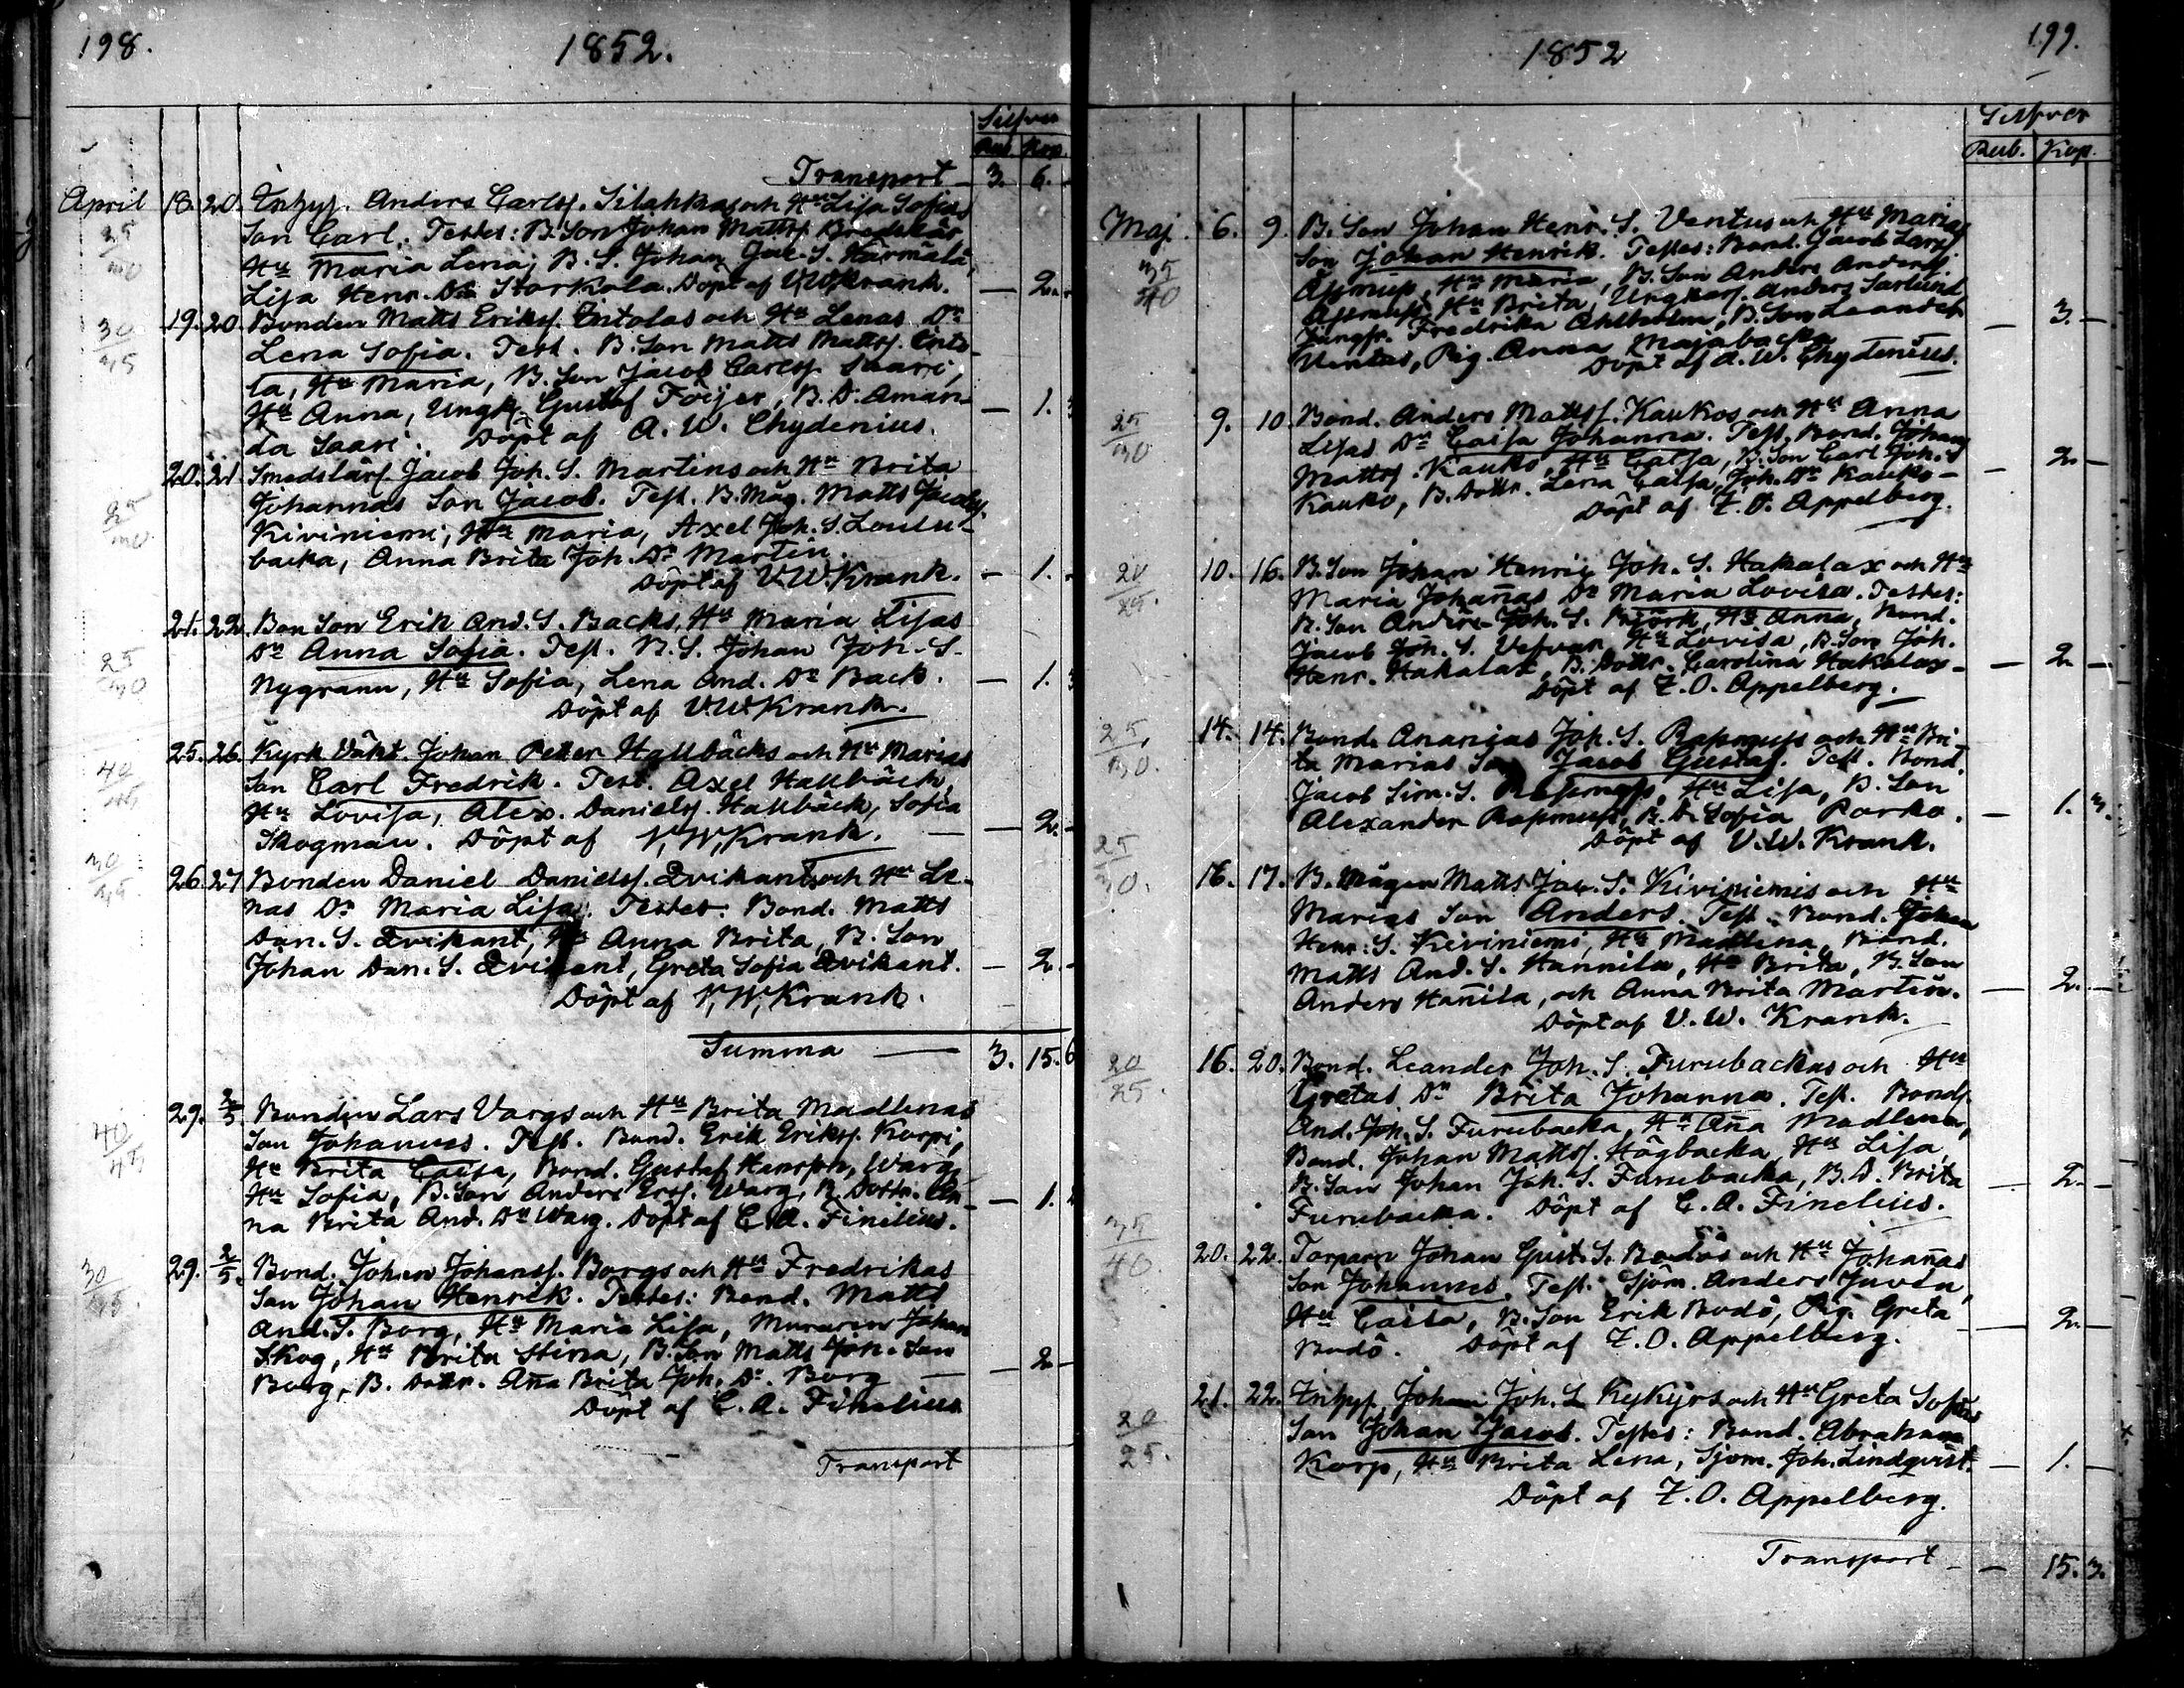 198.
1852.
Silfver
Rub. Kop.
Transport 3. 6.
April 18. 20. Inhys. Anders Carlss. Silahkas och Hu Lisa Sofias
25/30 Son Carl. Testes: B. Son Johan Mattss. Bredskär
Hu Maria Lena; B. S. Johan Jac. S. Härmälä,
Lisa Henr. Dr Storkola. Döpt af V.W. Krank. — 2. -
30/35 19. 20. Bonden Matts Erikss. Entolas och Hu Lenas Dr
Lena Sofia. Test. B. Son Matts Mattss. Ento-
la, Hu Maria, B. Son Jacob Carlss. Saari,
Hu Anna, Ungk. Gustaf Föijer, B. D. Aman- — 1. 3
da Saari. Döpt af A. W. Chydenius.
25/30 20. 21. Smedslärl. Jacob Joh. S. Martins och Hu Brita
Johannas Son Jacob. Test. B. Måg. Matts Jacobss.
Kiviniemi, Hu Maria, Axel Joh. S. Loulu-
backa, Anna Brita Joh. Dr Martin.
Döpt af V.W. Krank. — 1. -
25/30 21. 22. Bon Son Erik And. S. Backs, Hu Maria Lisas
Dr Anna Sofia. Test. B. S. Johan Joh. S.
Nygrann, Hu Sofia, Lena And. Dr Back. — 1. 3
Döpt af V.W. Krank.
40/45 25. 26. Kyrk Väkt. Johan Petter Hallbäcks och Hu Marias
Son Carl Fredrik. Test. Axel Hallbäck,
Hu Lovisa, Alex. Danielss. Hallbäck, Sofia
Skogman. Döpt af V.W. Krank. — 2. -
30/35 26. 27. Bonden Daniel Danielss. Qvikants och Hu Le-
nas Dr Maria Lisa. Testes: Bond. Matts
Dan. S. Qvikant, Hu Anna Brita, B. Son
Johan Dan. S. Qvikant, Greta Sofia Qvikant. — 2. -
Döpt af V.W. Krank.
Summa — 3. 15. 6
40/45 29. 2/5. Bonden Lars Vargs och Hu Brita Madlenas
Son Johannes. Test. Bond. Erik Erikss. Korpi,
Hu Brita Caisa, Bond. Gustaf Hansson Warg,
Hu Sofia, B. Son Anders Ers. Warg, B. Dottr. An- — 1.
na Brita And. Dr Warg. Döpt af C. A. Finelius.
30/35. 29. 2/5. Bond. Johan Johanss. Borgs och Hu Fredrikas
Son Johan Henrik. Testes: Bond. Matts
And. S. Borg, Hu Maria Lisa, Muraren Johan
Skog, Hu Brita Stina, B. Son Matts Joh. Son
Borg, B. Dottr. Aña Brita Joh. Dr. Borg — — 2 —
Döpt af C. A. Finelius
Transport
1852
199.
Silfver
Rub. Kop.
Maj. 6. 9. B. Son Johan Henr. S. Ventus och Hu Marias
35/40 Son Johan Henrik. Testes: Bond. Jacob Larss.
Assmus, Hu Maria, B. Son Anders Anderss.
Assmus, Hu Brita, Ungkarl. Anders Sarlund
Jungfr. Fredrika Ahlholm, B. Son Leander — 3. —
Ventus, Pig. Anna Majabacka
Döpt af A. W. Chydenius.
25/30 9. 10. Bond. Anders Mattss. Kaukos och Hu Anna
Lisas Dr Caisa Johanna. Test. Bond. Johan
Mattss. Kauko, Hu Caisa, B. Son Carl Joh. S. — 2. —
Kauko, B. Dottr. Lena Caisa Joh. Dr Kauko —
Döpt af Z. O. Appelberg.
20/25. 10. 16. B. Son Johan Henric Joh. S. Hakalax och Hu
Maria Johañas Dr Maria Lovisa. Testes:
B. Son Anders Joh. S. Björk, Hu Anna, Bond.
Jacob Joh. S. Vefvar, Hu Lovisa, B. Son Joh.
Henr. Hakalax, B. Dottr. Carolina Hakalax — — 2 —
Döpt af Z. O. Appelberg.
25/30. 14. 14. Bond. Ananias Joh. S. Rasmuss och Hu Bri-
ta Marias Son Jacob Gustaf. Test. Bond.
Jacob Sim. S. Rasmuss, Hu Lisa, B. Son
Alexander Rasmuss, B. D. Sofia Porko. — 1. 3.
Döpt af V. W. Krank.
25/30. 16. 17. B. Mågen Matts Jac. S. Kiviniemis och Hu
Marias Son Anders. Test. Bond. Johan
Henr. S. Kiviniemi, Hu Madlena, Bond.
Matts And. S. Hannila, Hu Brita, B. Son
Anders Hañila, och Anna Brita Martin. — 2. —
Döpt af V. W. Krank.
20/25. 16. 20. Bond. Leander Joh. S. Furubackas och Hu
Gretas Dr Brita Johanna. Test. Bond.
And. Joh. S. Furubacka, Hu Aña Madlena,
Bond. Johan Mattss. Högbacka, Hu Lisa
B. Son Johan Joh. S. Furubacka, B. D. Brita — 2. —
Furubacka. Döpt af C. A. Finelius.
35/40. 20. 22. Torparn Johan Gust. S. Bodös och Hu Johañas
Son Johannes. Test. Sjöm. Anders Juvsa,
Hu Caisa, B. Son Erik Bodö, Pig. Greta — 2. —
Bodö. Döpt af Z. O. Appelberg.
20/25. 21. 22. Inhys. Johan Joh. S. Kykyrs och Hu Greta Sofias
Son Johan Jacob. Testes: Bond. Abraham
Korp, Hu Brita Lena, Sjöm. Joh. Lindqvist. — 1. —
Döpt af Z. O. Appelberg.
Transport — — 15. 3.